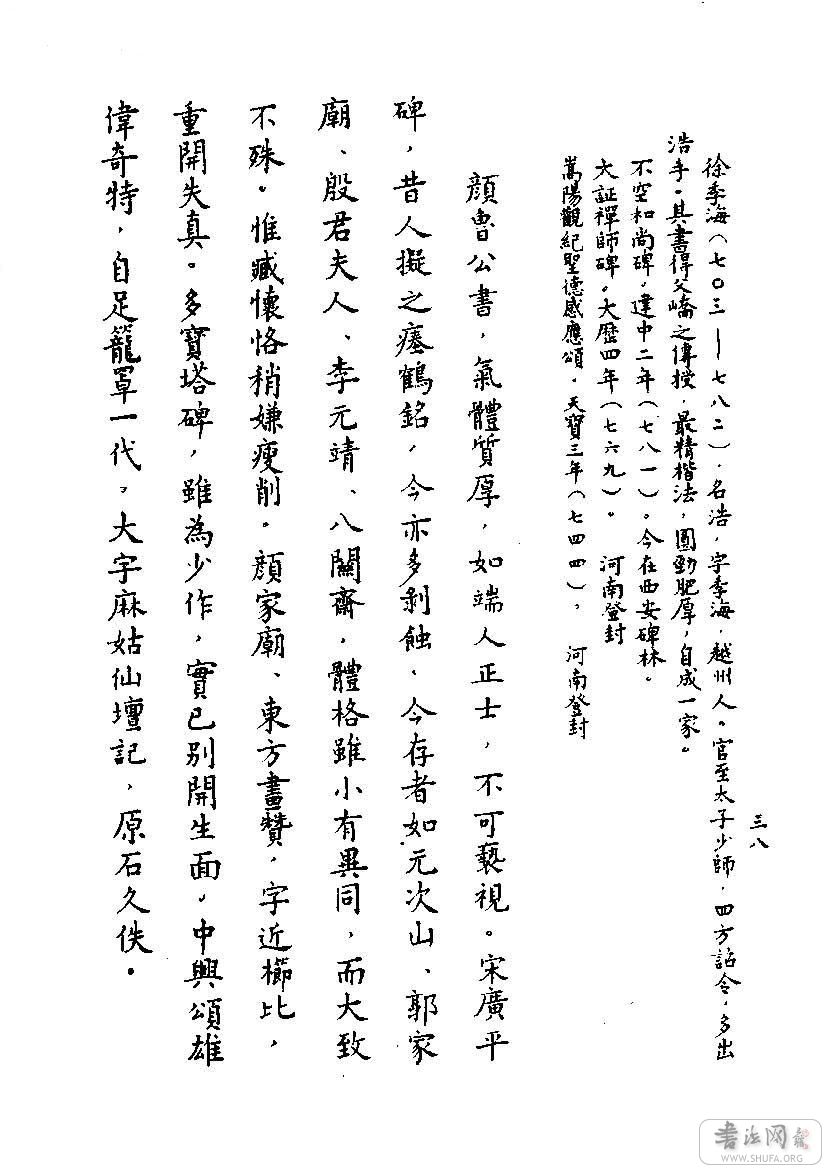 三八
徐季海(七〇三—七八二),名浩,字季海,越州人。官至太子少師,四方詔令,多出
浩手。其書得父嶠之傳授,最精楷法,圓勁肥厚,自成一家。
不空和尚碑,建中二年(七八一)。今在西安碑林。
大証禪師碑。大歷四年(七六九)。 河南登封
嵩陽觀紀聖德感應頌。天寶三年(七四四), 河南登封
顏魯公書,氣體質厚,如端人正士,不可褻視。宋廣平
碑,昔人擬之瘞鶴銘,今亦多剝蝕、今存者如元次山、郭家
廟、殷君夫人、李元靖、八關齋,體格雖小有異同,而大致
不殊。惟臧懷恪稍嫌瘦削。顏家廟、東方畫贊,字近櫛比,
重開失真。多寶塔碑,雖為少作,實已別開生面。中興頌雄
偉奇特,自足籠罩一代。大字麻姑仙壇記,原石久佚。
書法网
WWW.SHUFA.ORG